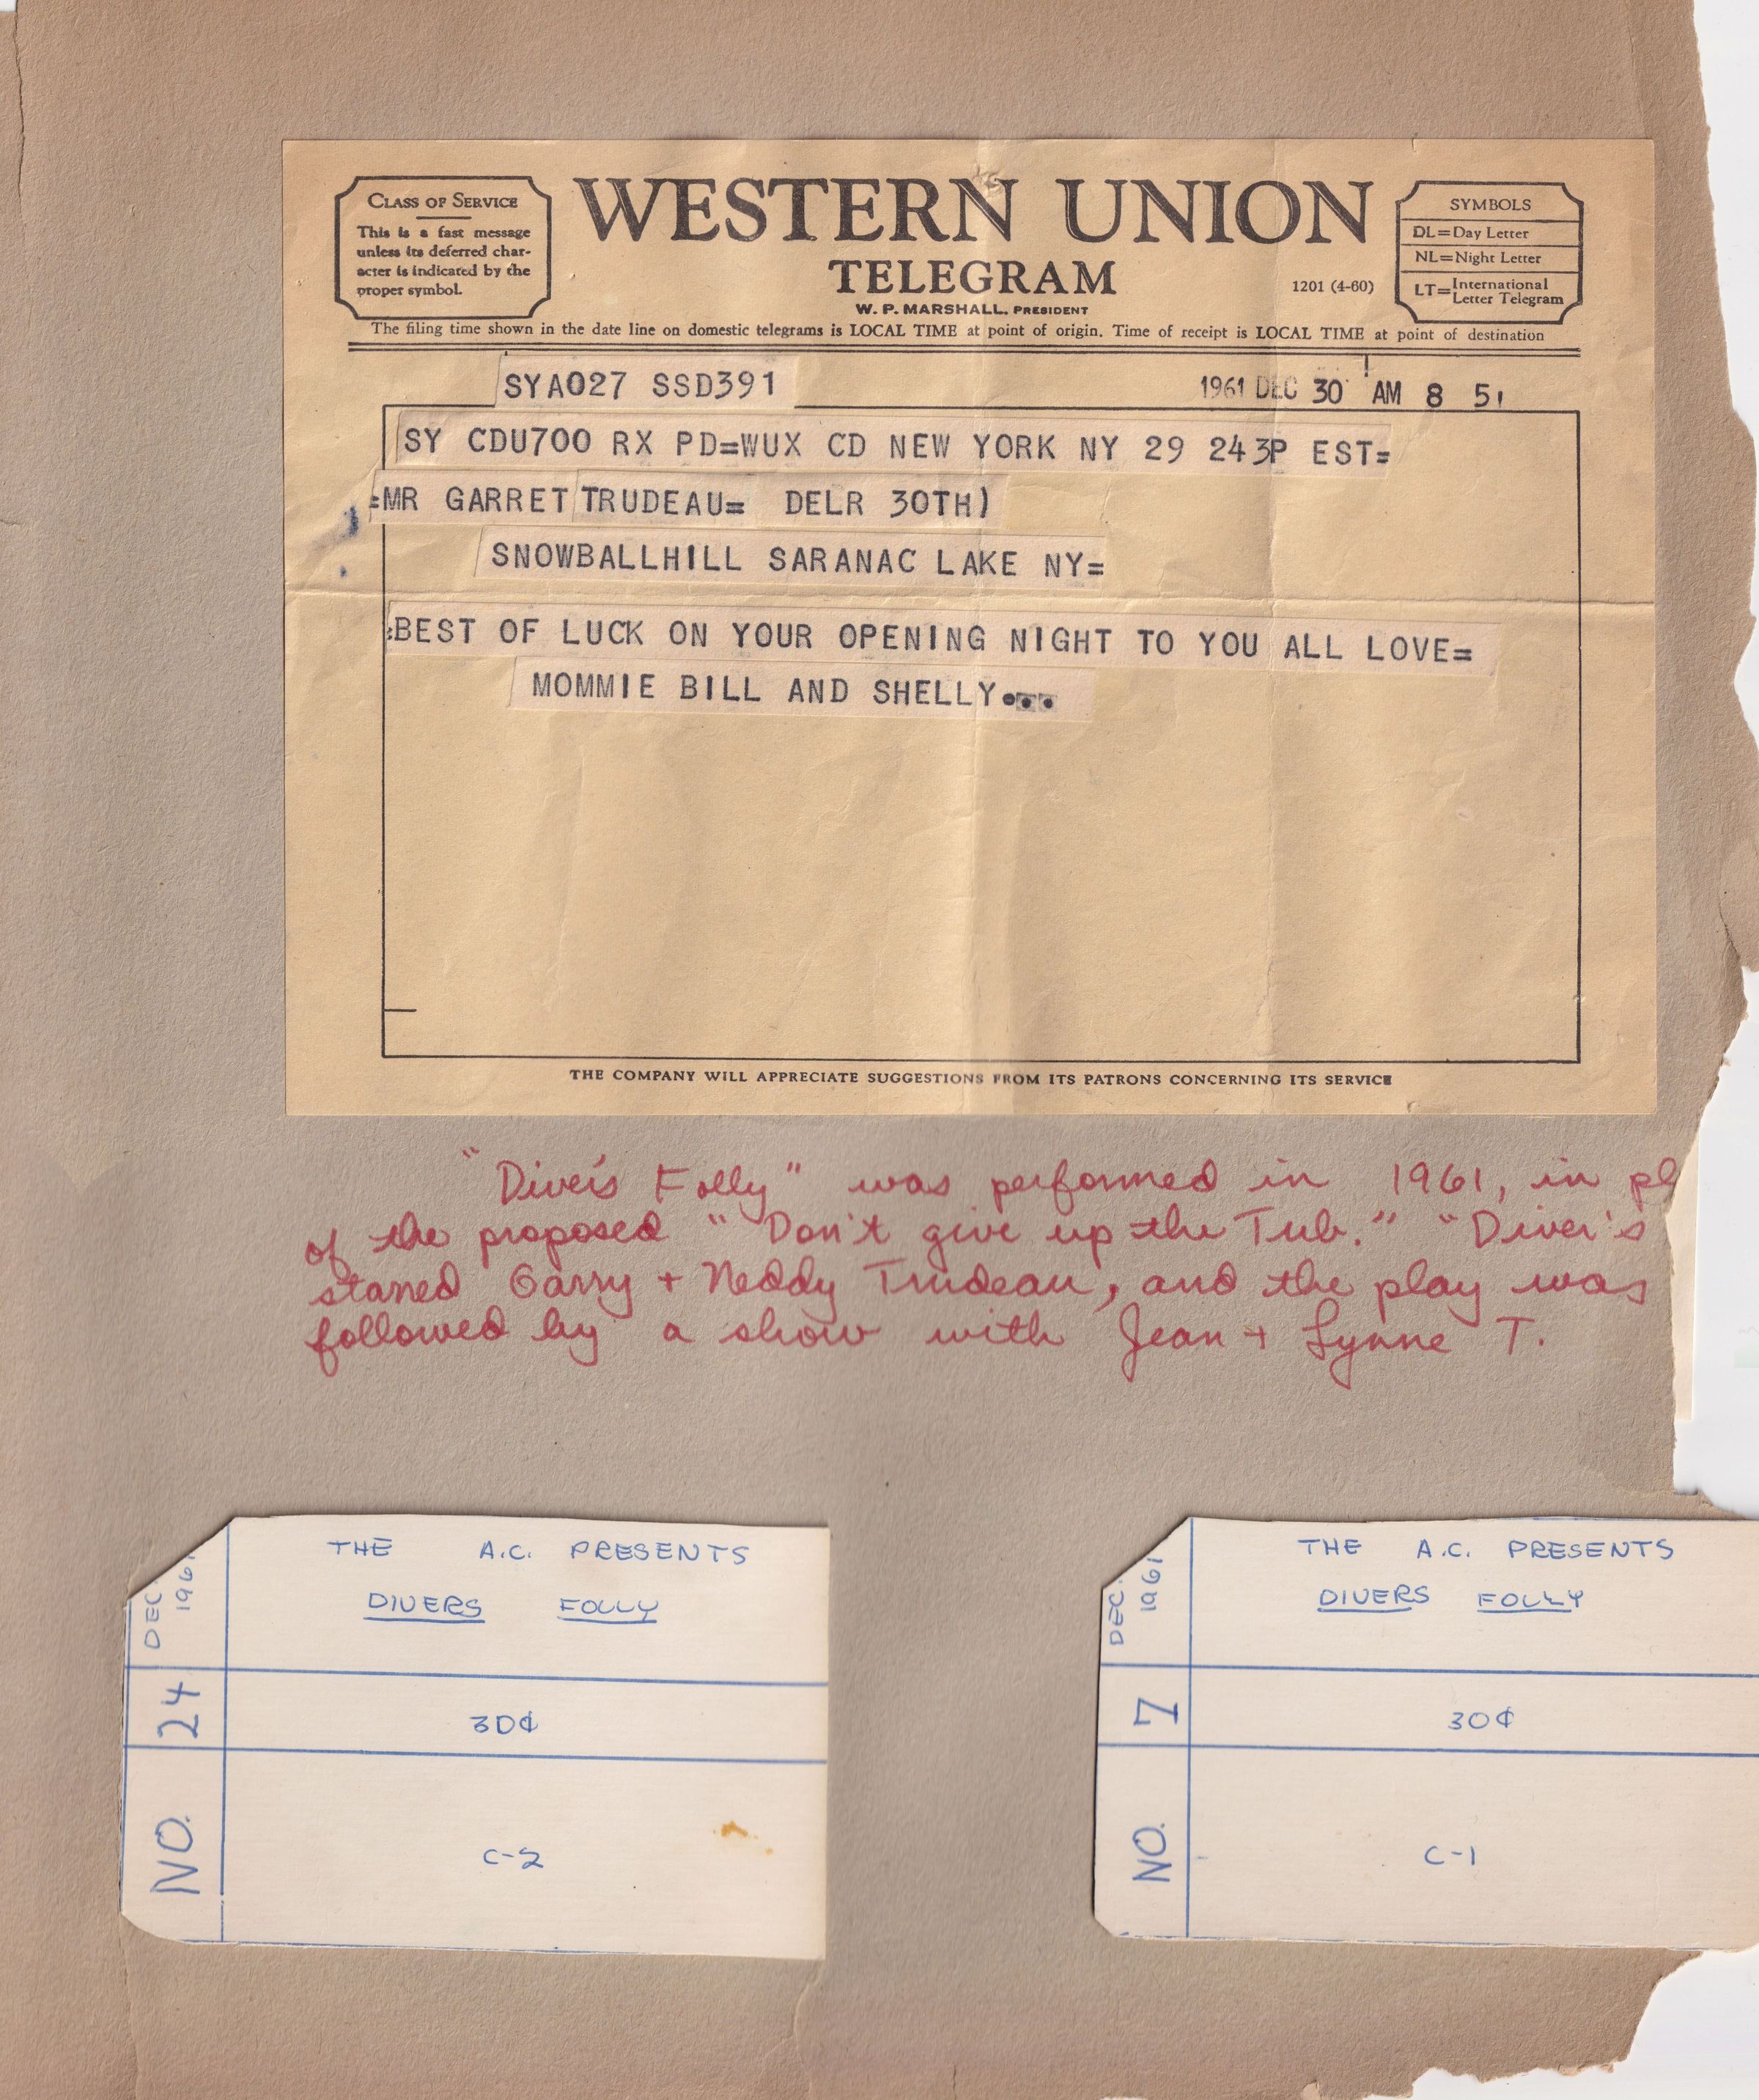 CLASS OF SERVICE
This is a fast message
unless its deferred char-
acter is indicated by the
proper symbol.
WESTERN UNION
TELEGRAM
W. P. MARSHALL, PRESIDENT
1201 (4-60)
SYMBOLS
DL=Day Letter
NL=Night Letter
LT=International
Letter Telegram
The filing time shown in the date line on domestic telegrams is LOCAL TIME at point of origin. Time of receipt is LOCAL TIME at point of destination
SYA027 SSD391
1961 DEC 30 AM 8 51
SY CDU700 RX PD=WUX CD NEW YORK NY 29 243P EST=
=MR GARRET TRUDEAU= DELR 30TH)
SNOWBALLHILL SARANAC LAKE NY=
:BEST OF LUCK ON YOUR OPENING NIGHT TO YOU ALL LOVE=
MOMMIE BILL AND SHELLY...
THE COMPANY WILL APPRECIATE SUGGESTIONS FROM ITS PATRONS CONCERNING ITS SERVICE
"Diver's Folly" was performed in 1961, in pl
of the proposed "Don't give up the Tub." "Diver's
starred Garry + Neddy Trudeau, and the play was
followed by a show with Jean + Lynne T.
THE A.C. PRESENTS
DIVERS FOLLY
30¢
C-2
NO. 24
DEC.
1961
THE A.C. PRESENTS
DIVERS FOLLY
30¢
C-1
NO. 7
DEC.
1961